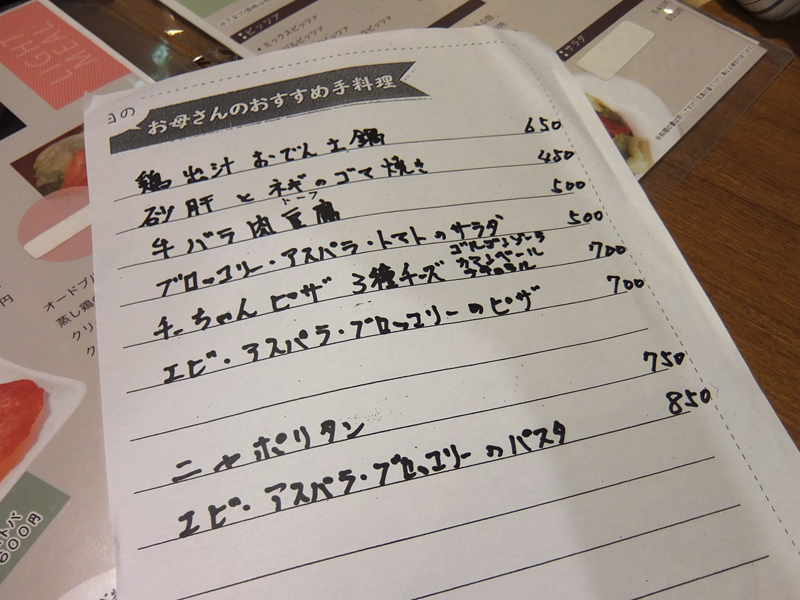 LIGHT
MEAL
ピッツァ
ミックスピッツァ
サラダ
日の お母さんのおすすめ手料理
鶏出汁 おでん土鍋 650
砂肝とネギのゴマ焼き 450
トーフ
牛バラ肉豆腐 500
ブロッコリー・アスパラ・トマトのサラダ 500
ゴルゴンゾーラ
カマンベール
チーちゃんピザ 3種チーズ 700
エビ・アスパラ・ブロッコリーのピザ 700
ニャポリタン 750
エビ・アスパラ・ブロッコリーのパスタ 850
円
オードブル
蒸し鶏の
クリ
ク
トパ
600円